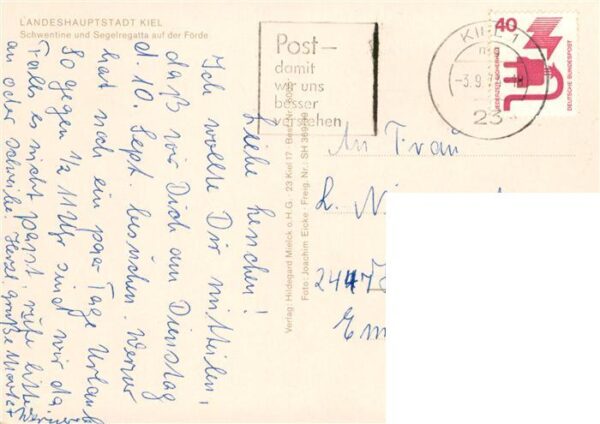 LANDESHAUPTSTADT KIEL
Schwentine und Segelregatta auf der Förde
Liebe Lenchen!
Ich wollte Dir mitteilen,
daß wir Dich am Dienstag
d. 10. Sept. besuchen. Werner
hat noch ein paar Tage Urlaub
So gegen ½ 11 Uhr sind wir da.
Falls es nicht passt, rufe bitte
an oder schreibe. Herzl. Grüße
Verlag: Hildegard Mielck o.H.G. · 23 Kiel 17 · Best. Nr.
Foto: Joachim Eicke · Freig. Nr.: SH
Post –
damit
wir uns
besser
verstehen
KIEL 1
-3.9.
23
40
JEDERZEIT SICHERHEIT
DEUTSCHE BUNDESPOST
An Frau
L.
Em